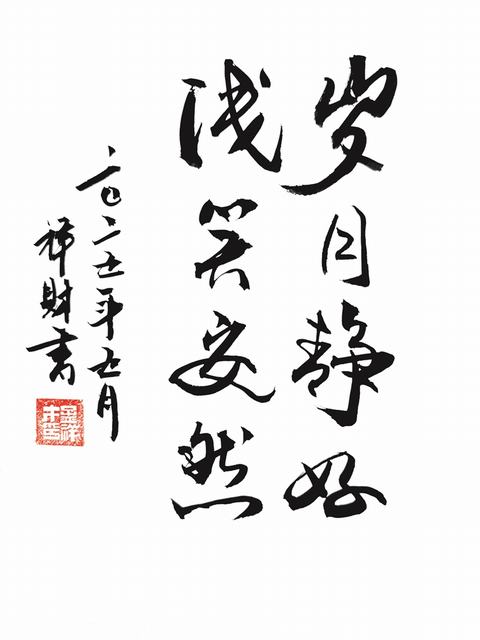 岁月静好
浅笑安然
二〇二五年五月
祥財书